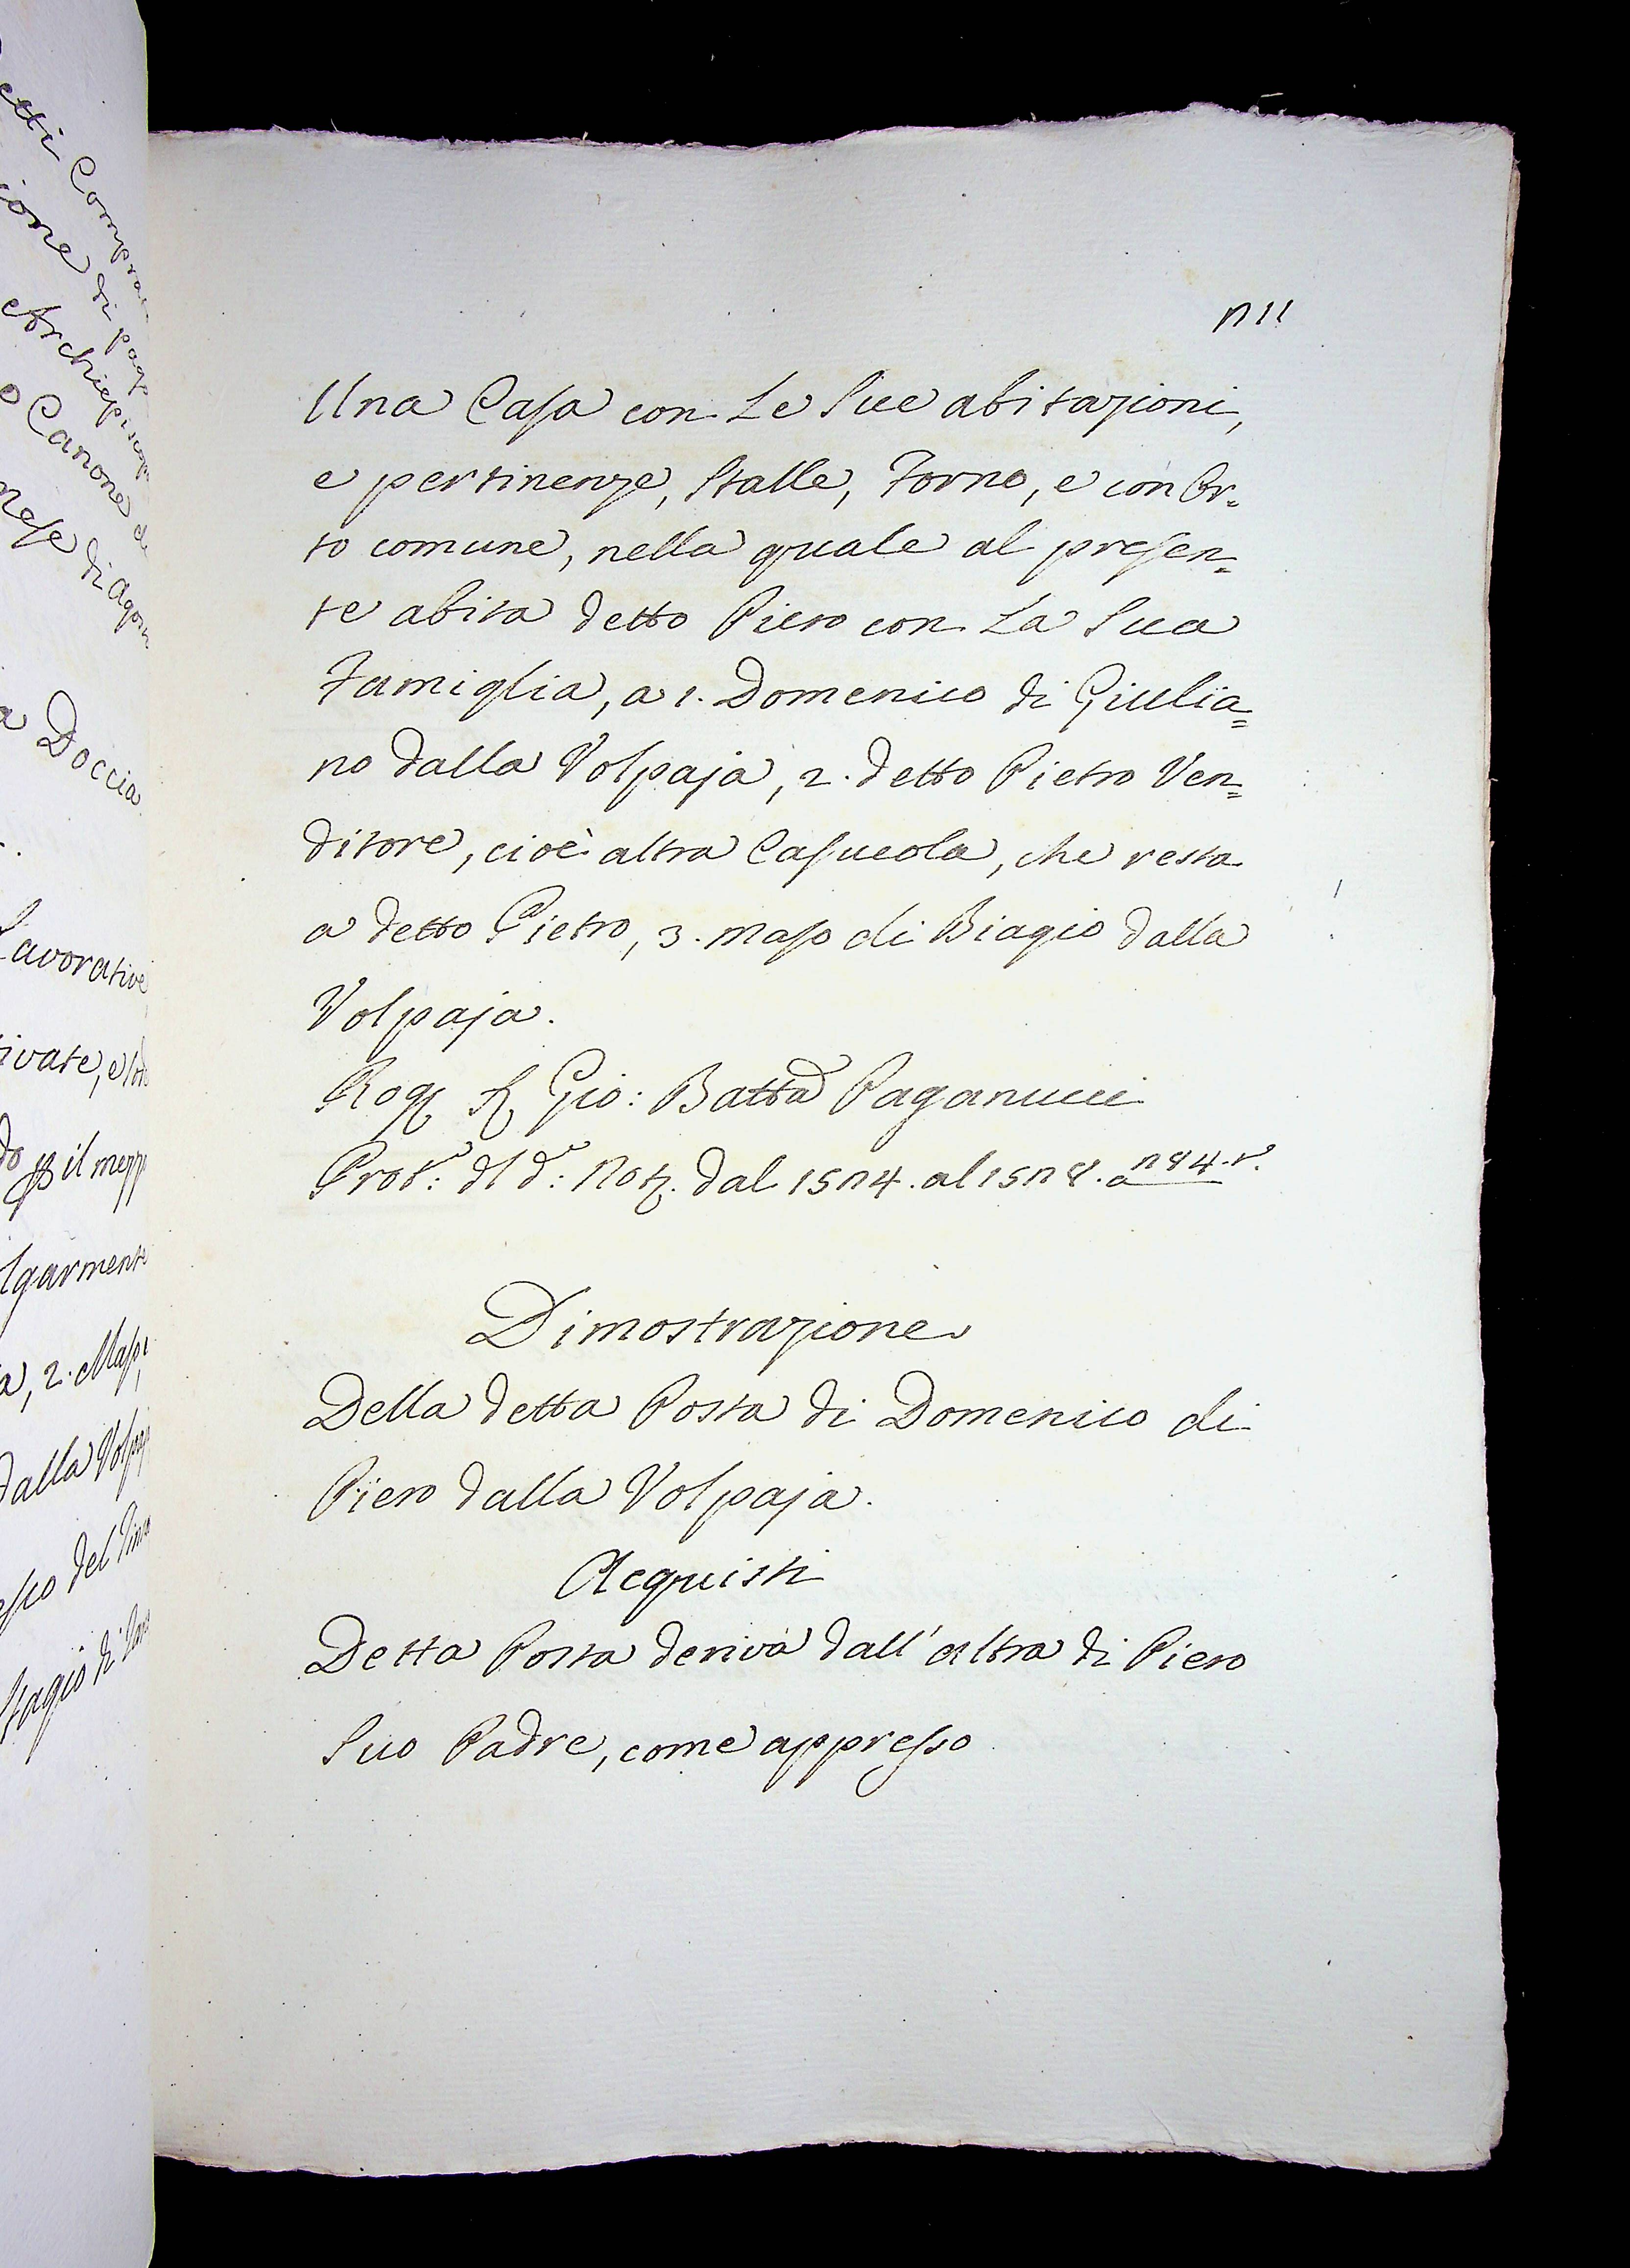 etti Compra
ione di pag
Archiepisco
o Canone d
mese di Agos
a Doccia
Lavorative
ivate, e
do il mezz
lgarmente
a, 2. Maso
dalla Volpaj
esso del
Stagio di
711
Una Casa con Le Sue abitazioni,
e pertinenze, Stalle, Forno, e con Or=
to comune, nella quale al presen=
te abita detto Piero con La Sua
Famiglia, a 1. Domenico di Giulia=
no dalla Volpaja, 2. detto Pietro Ven=
ditore, cioè altra Casucola, che resta
a detto Pietro, 3. Maso di Biagio dalla
Volpaja.
Rog. S. Gio: Batta Paganucci
Prot: dl d: Not. dal 1574. al 1578. a 784. r.
Dimostrazione
Della detta Posta di Domenico di
Piero dalla Volpaja.
Acquisti
Detta Posta deriva dall'altra di Piero
Suo Padre, come appresso